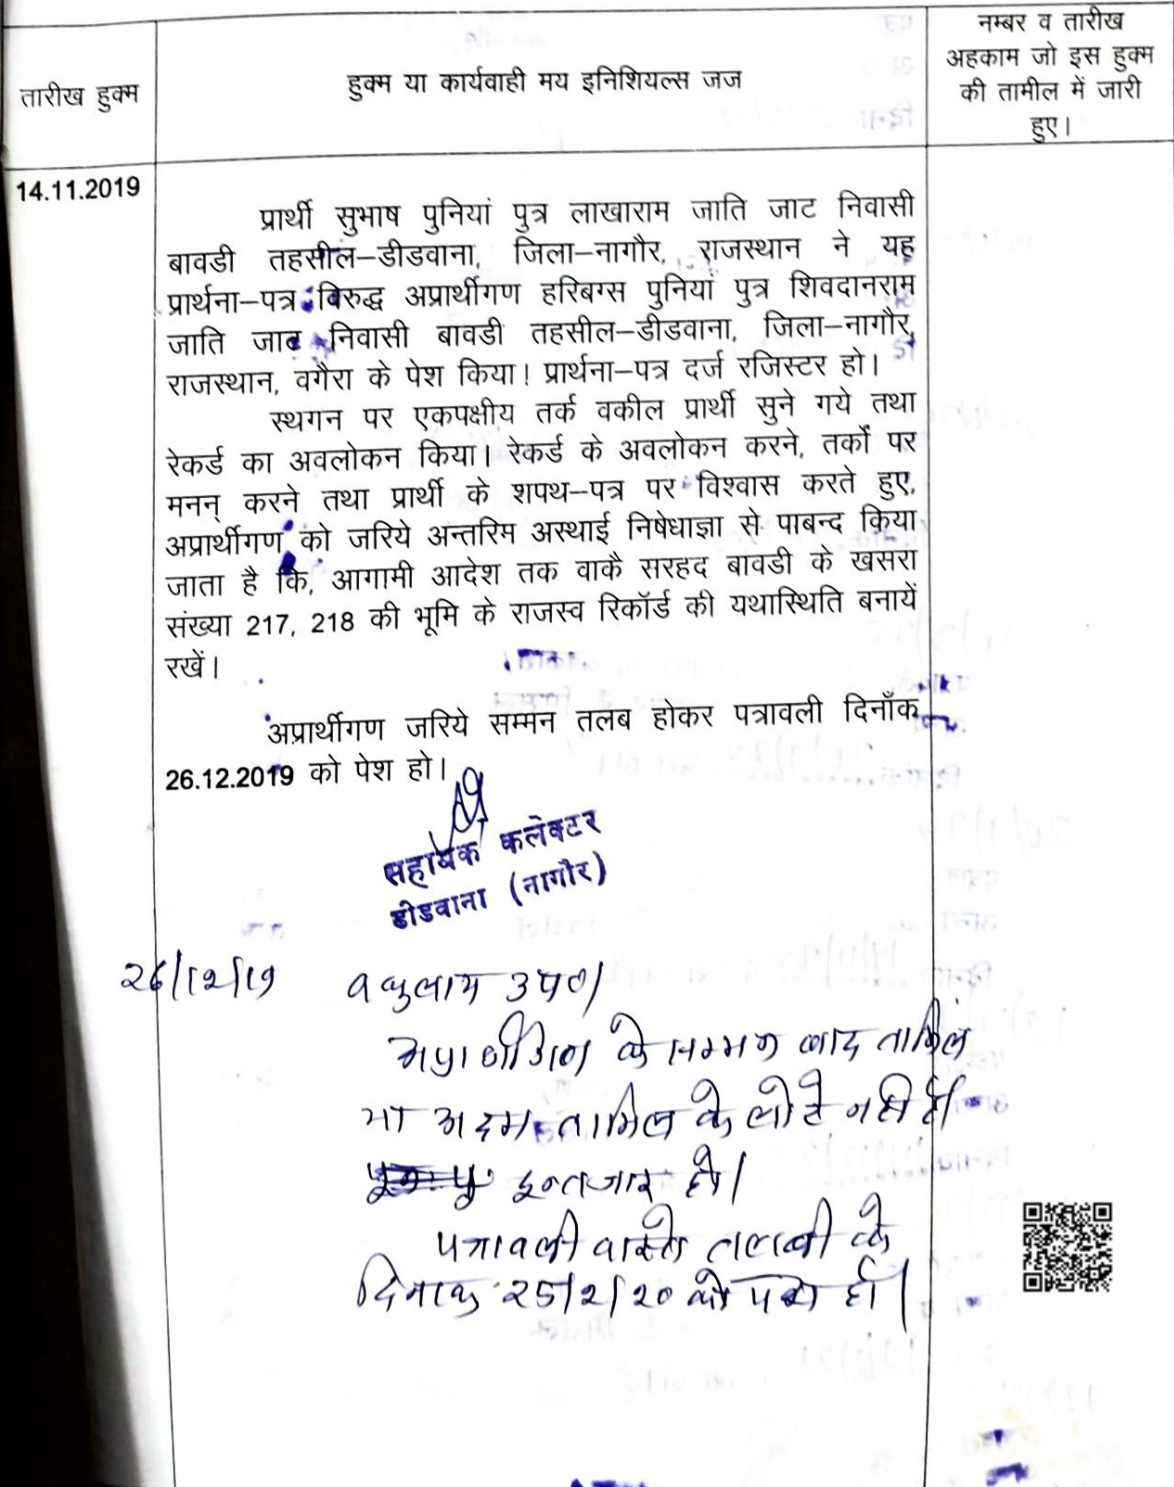 तारीख हुक्म
हुक्म या कार्यवाही मय इनिशियल्स जज
नम्बर व तारीख
अहकाम जो इस हुक्म
की तामील में जारी
हुए।
14.11.2019
प्रार्थी सुभाष पुनियां पुत्र लाखाराम जाति जाट निवासी
बावडी तहसील–डीडवाना, जिला–नागौर, राजस्थान ने यह
प्रार्थना–पत्र विरुद्ध अप्रार्थीगण हरिबग्स पुनियां पुत्र शिवदानराम
जाति जाट निवासी बावडी तहसील–डीडवाना, जिला–नागौर,
राजस्थान, वगैरा के पेश किया। प्रार्थना–पत्र दर्ज रजिस्टर हो।
स्थगन पर एकपक्षीय तर्क वकील प्रार्थी सुने गये तथा
रेकर्ड का अवलोकन किया। रेकर्ड के अवलोकन करने, तर्कों पर
मनन् करने तथा प्रार्थी के शपथ–पत्र पर विश्वास करते हुए,
अप्रार्थीगण को जरिये अन्तरिम अस्थाई निषेधाज्ञा से पाबन्द किया
जाता है कि, आगामी आदेश तक वाकै सरहद बावडी के खसरा
संख्या 217, 218 की भूमि के राजस्व रिकॉर्ड की यथास्थिति बनायें
रखें।
अप्रार्थीगण जरिये सम्मन तलब होकर पत्रावली दिनाँक
26.12.2019 को पेश हो।
सहायक कलेक्टर
डीडवाना (नागौर)
26/12/19 वकुलाय उप०।
अप्रार्थीगण के सम्मन बाद तामिल
या अदम तामिल के लौटे नही है।
इन्तजार हो।
पत्रावली वास्ते तलबी के
दिनाक 25/2/20 को पेश हो।